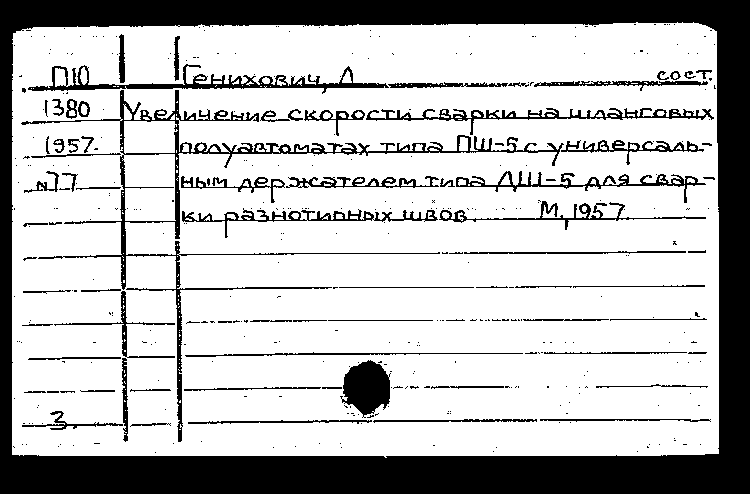 П10 Генихович, Л сост.
1380 Увеличение скорости сварки на шланговых
1957. полуавтоматах типа ПШ-5 с универсаль-
N77 ным держателем типа ДШ-5 для свар-
ки разнотипных швов. М, 1957
3.